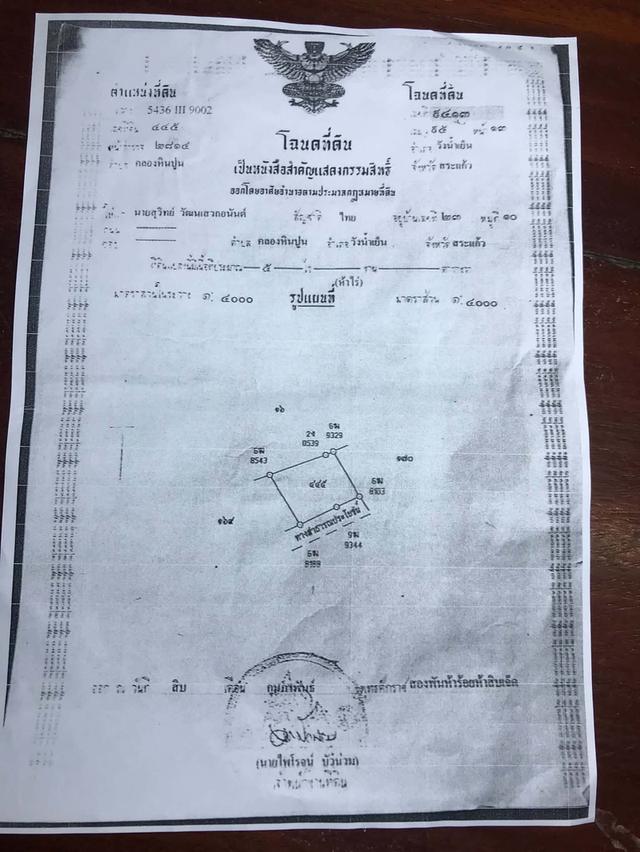 ตำแหน่งที่ดิน
5436 III 9002
๔๔๕
๒๘๑๔
คลองหินปูน
โฉนดที่ดิน
๑๓
วังน้ำเย็น
สระแก้ว
โฉนดที่ดิน
เป็นหนังสือสำคัญแสดงกรรมสิทธิ์
ออกโดยอาศัยอำนาจตามประมวลกฎหมายที่ดิน
นายสุวิทย์ ไทย ๒๓ หมู่ที่ ๑๐
ตำบล คลองหินปูน อำเภอ วังน้ำเย็น จังหวัด สระแก้ว
๕
(ห้าไร่)
มาตราส่วนในระวาง ๑: ๔๐๐๐ รูปแผนที่ มาตราส่วน ๑: ๔๐๐๐
๑๖
2ง 0539
6ฆ 9329
6ฆ 8543
๑๘๐
๔๔๕
6ฆ 8103
๑๖๔
ทางสาธารณประโยชน์
9ฆ 9344
6ฆ
ออก ณ วันที่ สิบ เดือน กุมภาพันธ์ พุทธศักราช สองพันห้าร้อยห้าสิบเอ็ด
(นายไพโรจน์ บัวน่วม)
เจ้าพนักงานที่ดิน